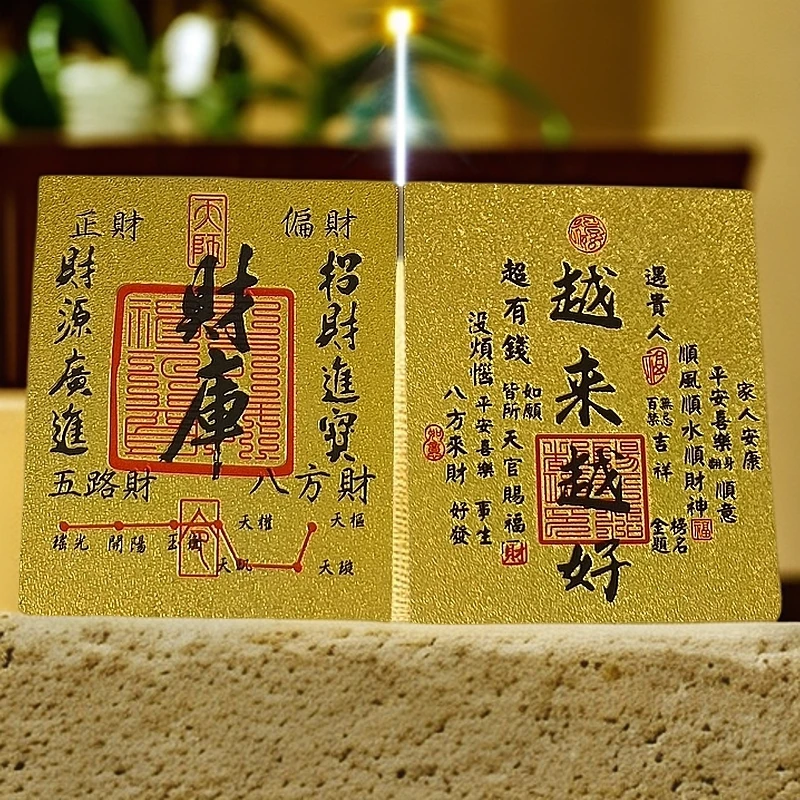 正財
天師
偏財
財源廣進
財庫
招財進寶
五路財
八方財
瑤光
開陽
玉衡
天權
天璣
天璇
天樞
越来越好
遇貴人
福
無忌
百禁
吉祥
順風順水順財神
福
金榜
題名
平安喜樂
順意
家人安康
超有錢
如願
皆所
天官賜福
財
沒煩惱
平安喜樂
事生
八方來財
好發